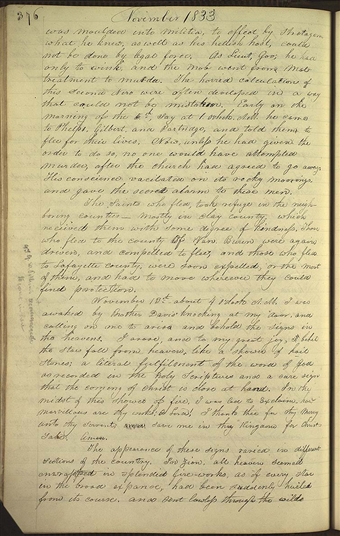 376
November 1833
was moulded into militia, to effect by Stratagem
what he knew, as well as his hellish host, could
not be done by legal force. As Lieut. Gov. he had
only to wink, and the mob went from mal-
treatment to murder. The horrid calculations of
this second Nero were often developed in a way
that could not be mistaken. Early in the
morning of the 5th, say at 1 o'clock A.M. he came
to Phelps, Gilbert, and Partridge, and told them to
flee for their lives. Now, unless he had given the
order to do so, no one would have attempted
murder, after the church had agreed to go away.
His conscience vacillated on its rocky moorings
and gave the secret alarm to these men.
The Saints who fled, took refuge in the neigh-
boring counties — Mostly in Clay county, which
received them with some degree of kindness, Those
who fled to the county of Van Buren were again
driven, and compelled to flee, and those who fled
to Lafayette county, were soon expelled, or the most
of them, and had to move wherever they could
find protection.
November 13th about 4 o'clock A.M. I was
awaked by Brother Davis knocking at my door, and
calling on me to arise and behold the signs in
the heavens. I arose, and to my great joy, beheld
the stars fall from heaven, like a shower of hail
stones; a literal fulfilment of the word of god
as recorded in the holy Scriptures and a sure sign
that the coming of Christ is close at hand. In the
midst of this shower of fire, I was led to Exclaim, how
marvellous are thy works O Lord! I thank thee for thy mercy
unto thy servant, save me in thy Kingdom for Christ
Sake. Amen.
The appearance of these signs varied in different
sections of the country. In Zion, all heaven seemed
enwrapped in splendid fireworks, as if every star
in the broad expanse, had been suddenly hurled
from its course, and sent lawless through the wilds